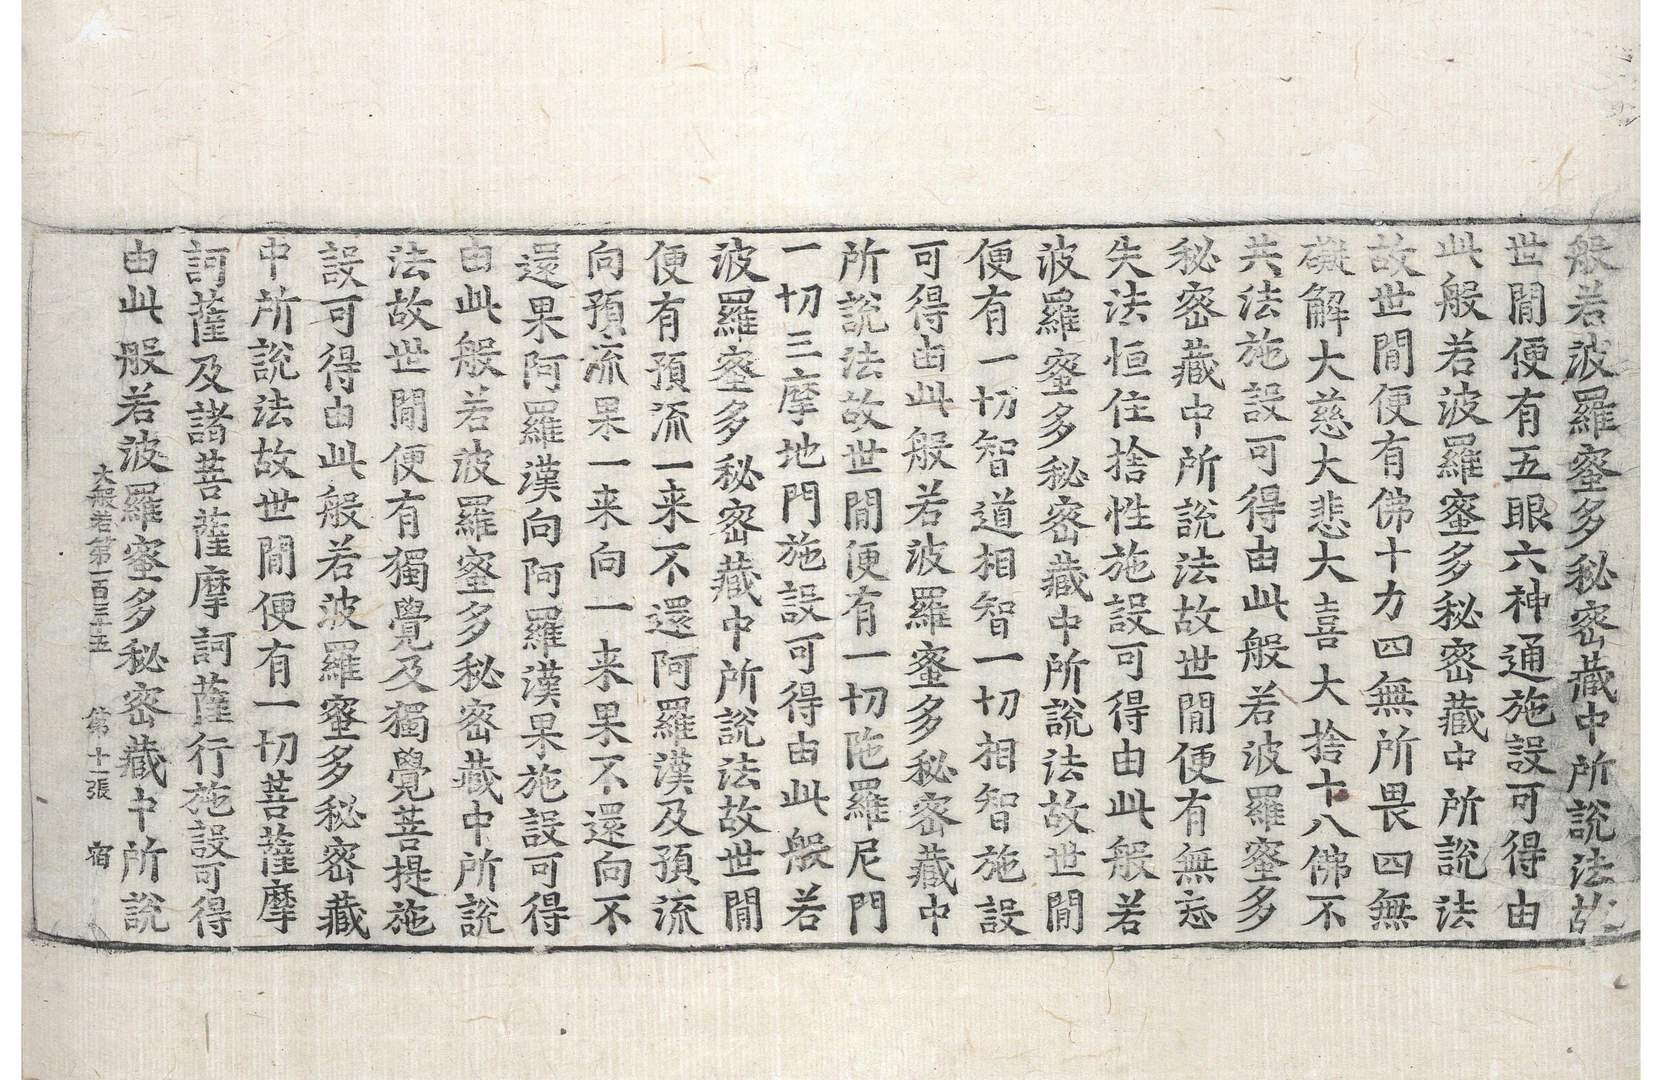 般若波羅蜜多秘密藏中所說法故
世間便有五眼六神通施設可得由
此般若波羅蜜多秘密藏中所說法
故世間便有佛十力四無所畏四無
礙解大慈大悲大喜大捨十八佛不
共法施設可得由此般若波羅蜜多
秘密藏中所說法故世間便有無忘
失法恒住捨性施設可得由此般若
波羅蜜多秘密藏中所說法故世間
便有一切智道相智一切相智施設
可得由此般若波羅蜜多秘密藏中
所說法故世間便有一切陁羅尼門
一切三摩地門施設可得由此般若
波羅蜜多秘密藏中所說法故世間
便有預流一来不還阿羅漢及預流
向預流果一来向一来果不還向不
還果阿羅漢向阿羅漢果施設可得
由此般若波羅蜜多秘密藏中所說
法故世間便有獨覺及獨覺菩提施
設可得由此般若波羅蜜多秘密藏
中所說法故世間便有一切菩薩摩
訶薩及諸菩薩摩訶薩行施設可得
由此般若波羅蜜多秘密藏中所說
大般若第一百三十五 第十一張 宿